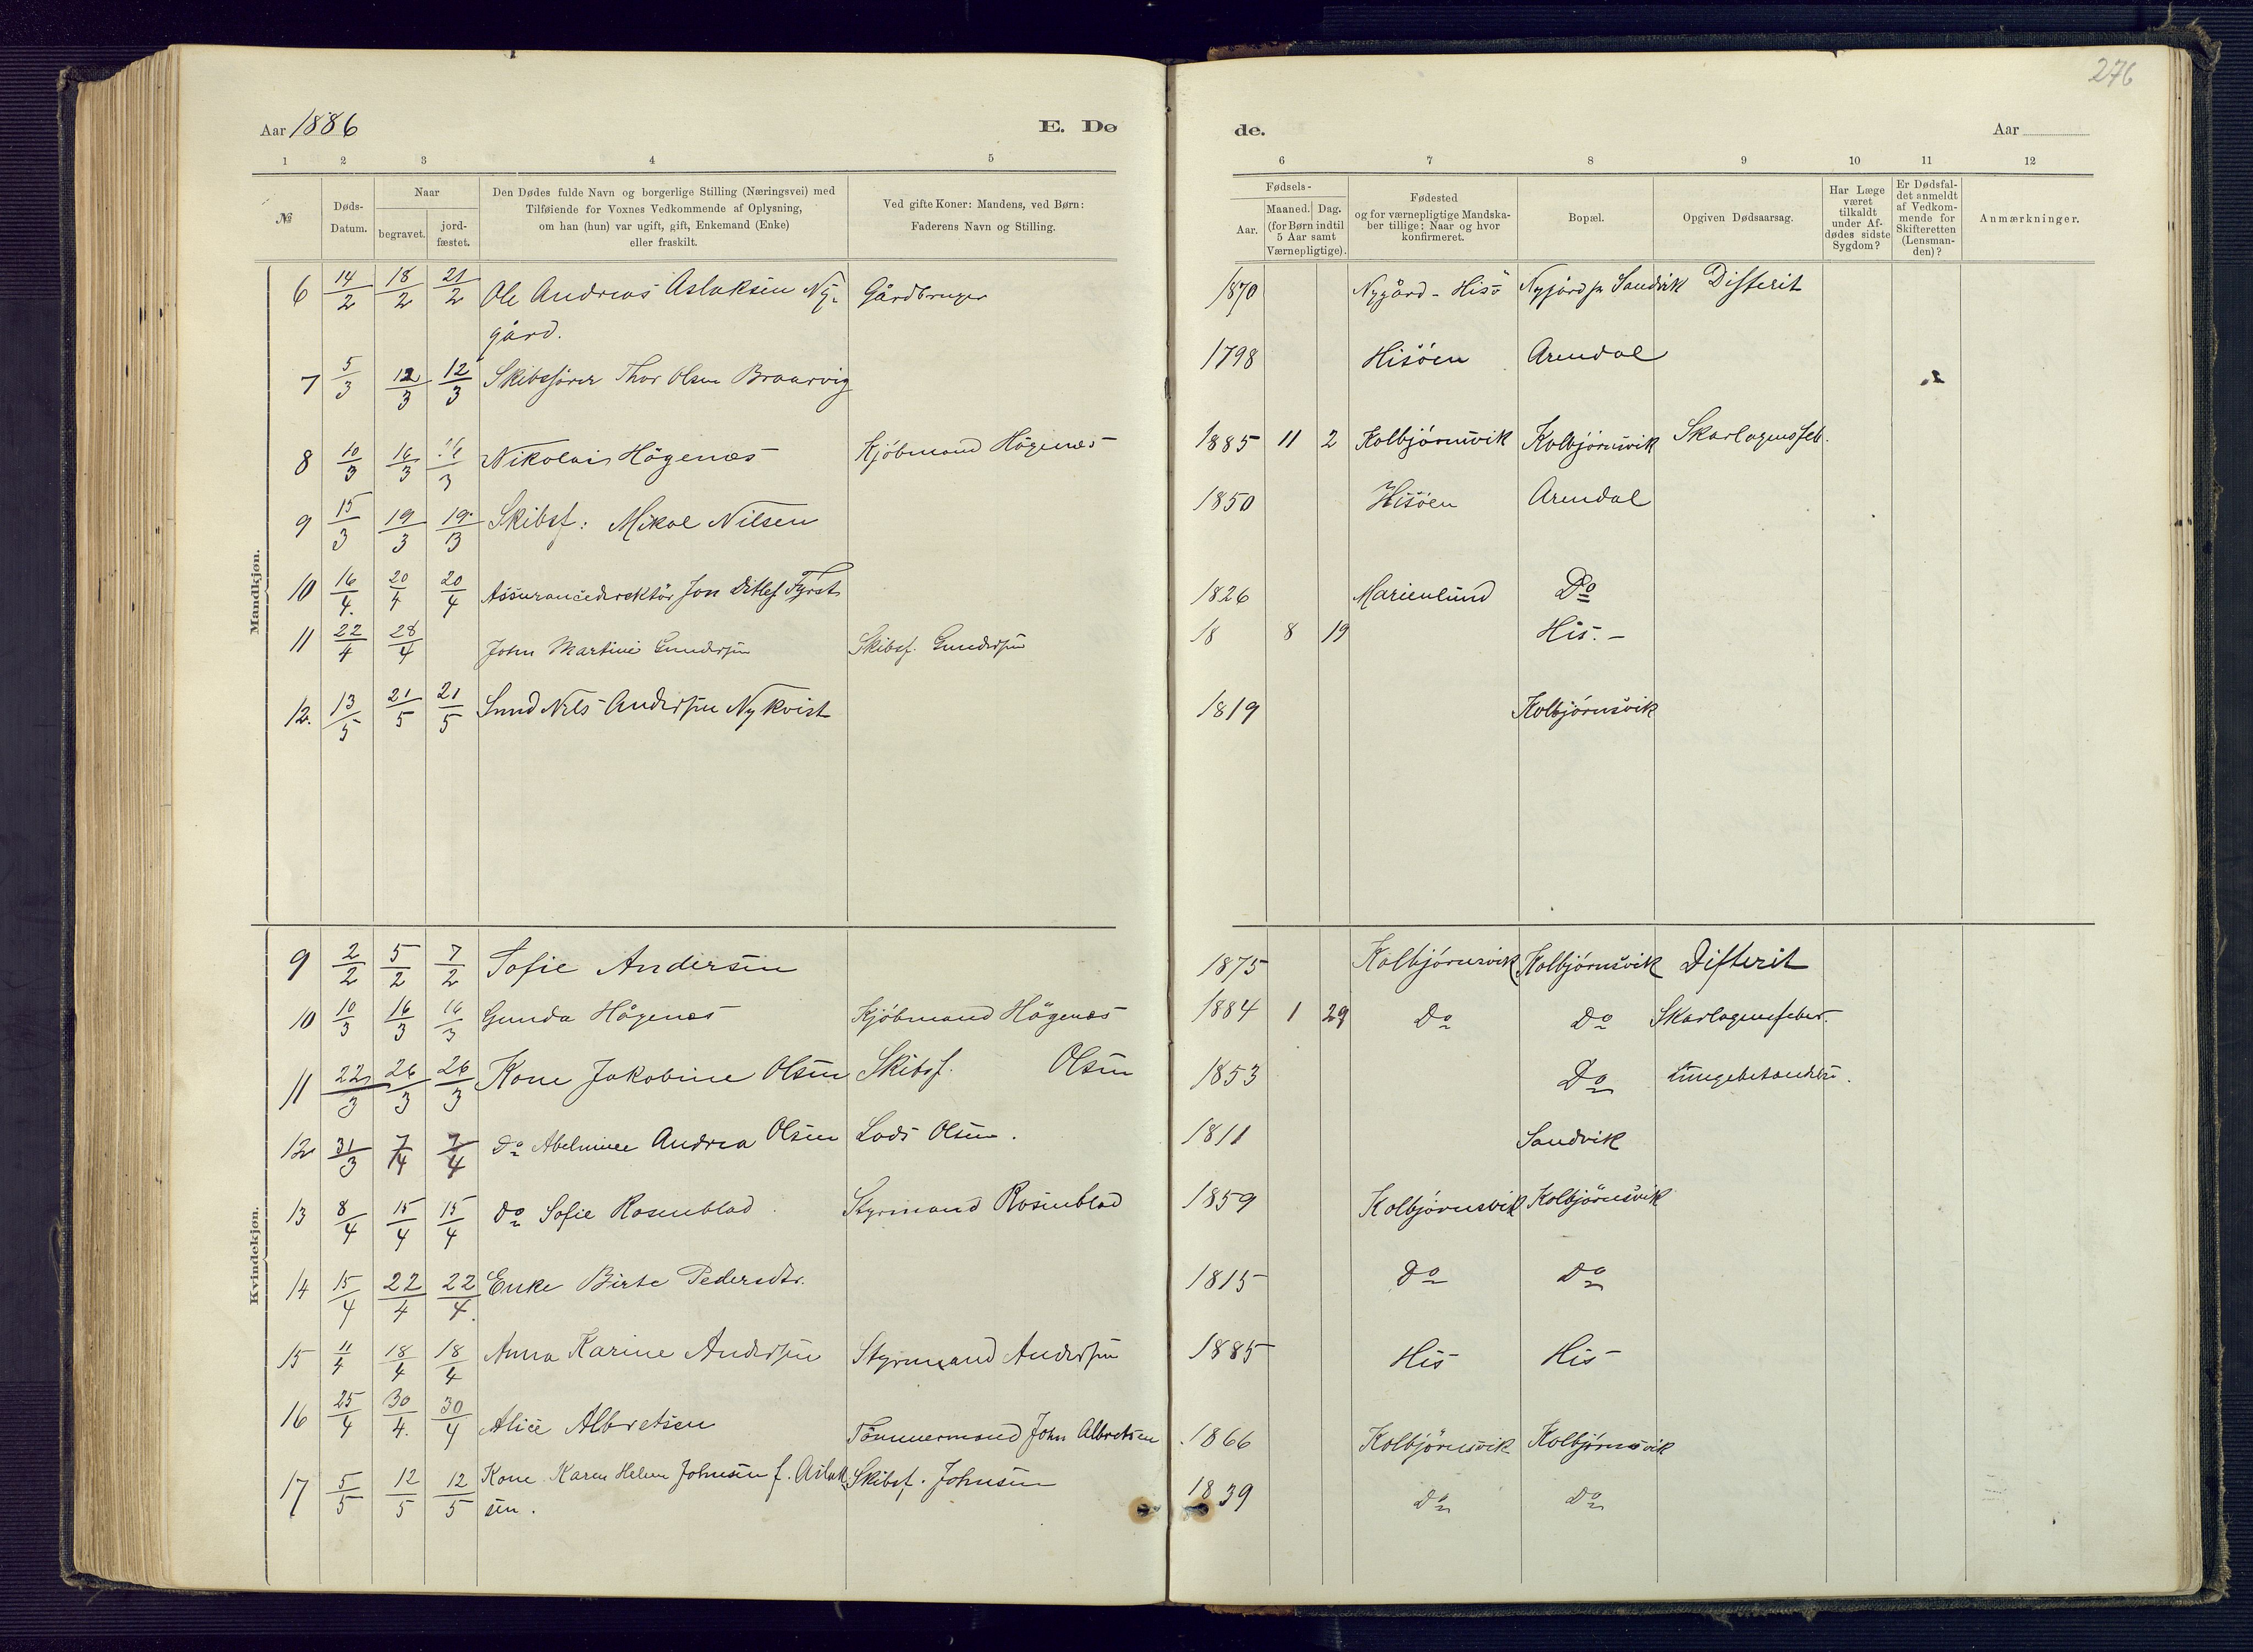 276
Aar 1886
E. Dø
de.
Aar
1 2 3 4 5 6 7 8 9 10 11 12
№
Døds-
Datum.
Naar
begravet.
jord-
fæstet.
Den Dødes fulde Navn og borgerlige Stilling (Næringsvei) med
Tilføiende for Voxnes Vedkommende af Oplysning,
om han (hun) var ugift, gift, Enkemand (Enke)
eller fraskilt.
Ved gifte Koner: Mandens, ved Børn:
Faderens Navn og Stilling.
Fødsels-
Aar.
Maaned. Dag.
(for Børn indtil
5 Aar samt
Værnepligtige).
Fødested
og for værnepligtige Mandska-
ber tillige: Naar og hvor
konfirmeret.
Bopæl.
Opgiven Dødsaarsag.
Har Læge
været
tilkaldt
under Af-
dødes sidste
Sygdom?
Er Dødsfal-
det anmeldt
af Vedkom-
mende for
Skifteretten
(Lensman-
den)?
Anmærkninger.
Mandkjøn.
6 14/2 18/2 21/2 Ole Andreas Aslaksen Ny- Gårdbruger 1870 Nygård - Hisö Nygård Sandvik Differit
gård.
7 5/3 12/3 12/3 Skibsfører Thor Olsen Braarvig 1798 Hisöen Arendal
8 10/3 16/3 16/3 Nikolai Högenæs Kjöbmand Högenæs 1885 11 2 Kolbjörnsvik Kolbjörnsvik Skarlagensfeb.
9 15/3 19/3 19/3 Skibsf: Mikal Nilsen 1850 Hisöen Arendal
10 16/4 20/4 20/4 Assurancedirektör Jon Ditlef Fyrst 1826 Marienlund Do
11 22/4 28/4 John Martini Gundersen Skibsf. Gundersen 18 8 19 His. -
12. 13/5 21/5 21/5 Nils Andersen Nykvist 1819 Kolbjörnsvik
Kvindekjøn.
9 2/2 5/2 7/2 Sofie Andersen 1875 Kolbjörnsvik Kolbjörnsvik Difterit
10 10/3 16/3 16/3 Gunda Högenæs Kjöbmand Högenæs 1884 1 29 Do Do Skarlagensfeber.
11 22/3 26/3 26/3 Kone Jakobine Olsen Skibsf. Olsen 1853 Do Lungebetændelse.
12 31/3 7/4 7/4 Do Abelmine Andrea Olsen Lods Olsen. 1811 Sandvik
13 8/4 15/4 15/4 Do Sofie Rosenblad. Styrmand Rosenblad 1859 Kolbjörnsvik Kolbjörnsvik
14 15/4 22/4 22/4. Enke Birte Pedersdtr. 1815 Do Do
15 11/4 18/4 18/4 Anna Karine Andersen Styrmand Andersen 1885 His His
16 25/4 30/4. 30/4 Alice Albretsen Tömmermand John Albretsen 1866 Kolbjörnsvik Kolbjörnsvik
17 5/5 12/5 12/5 Kone Karen Helene Johnsen f. Aslak- Skibsf. Johnsen 1839 Do Do
sen.